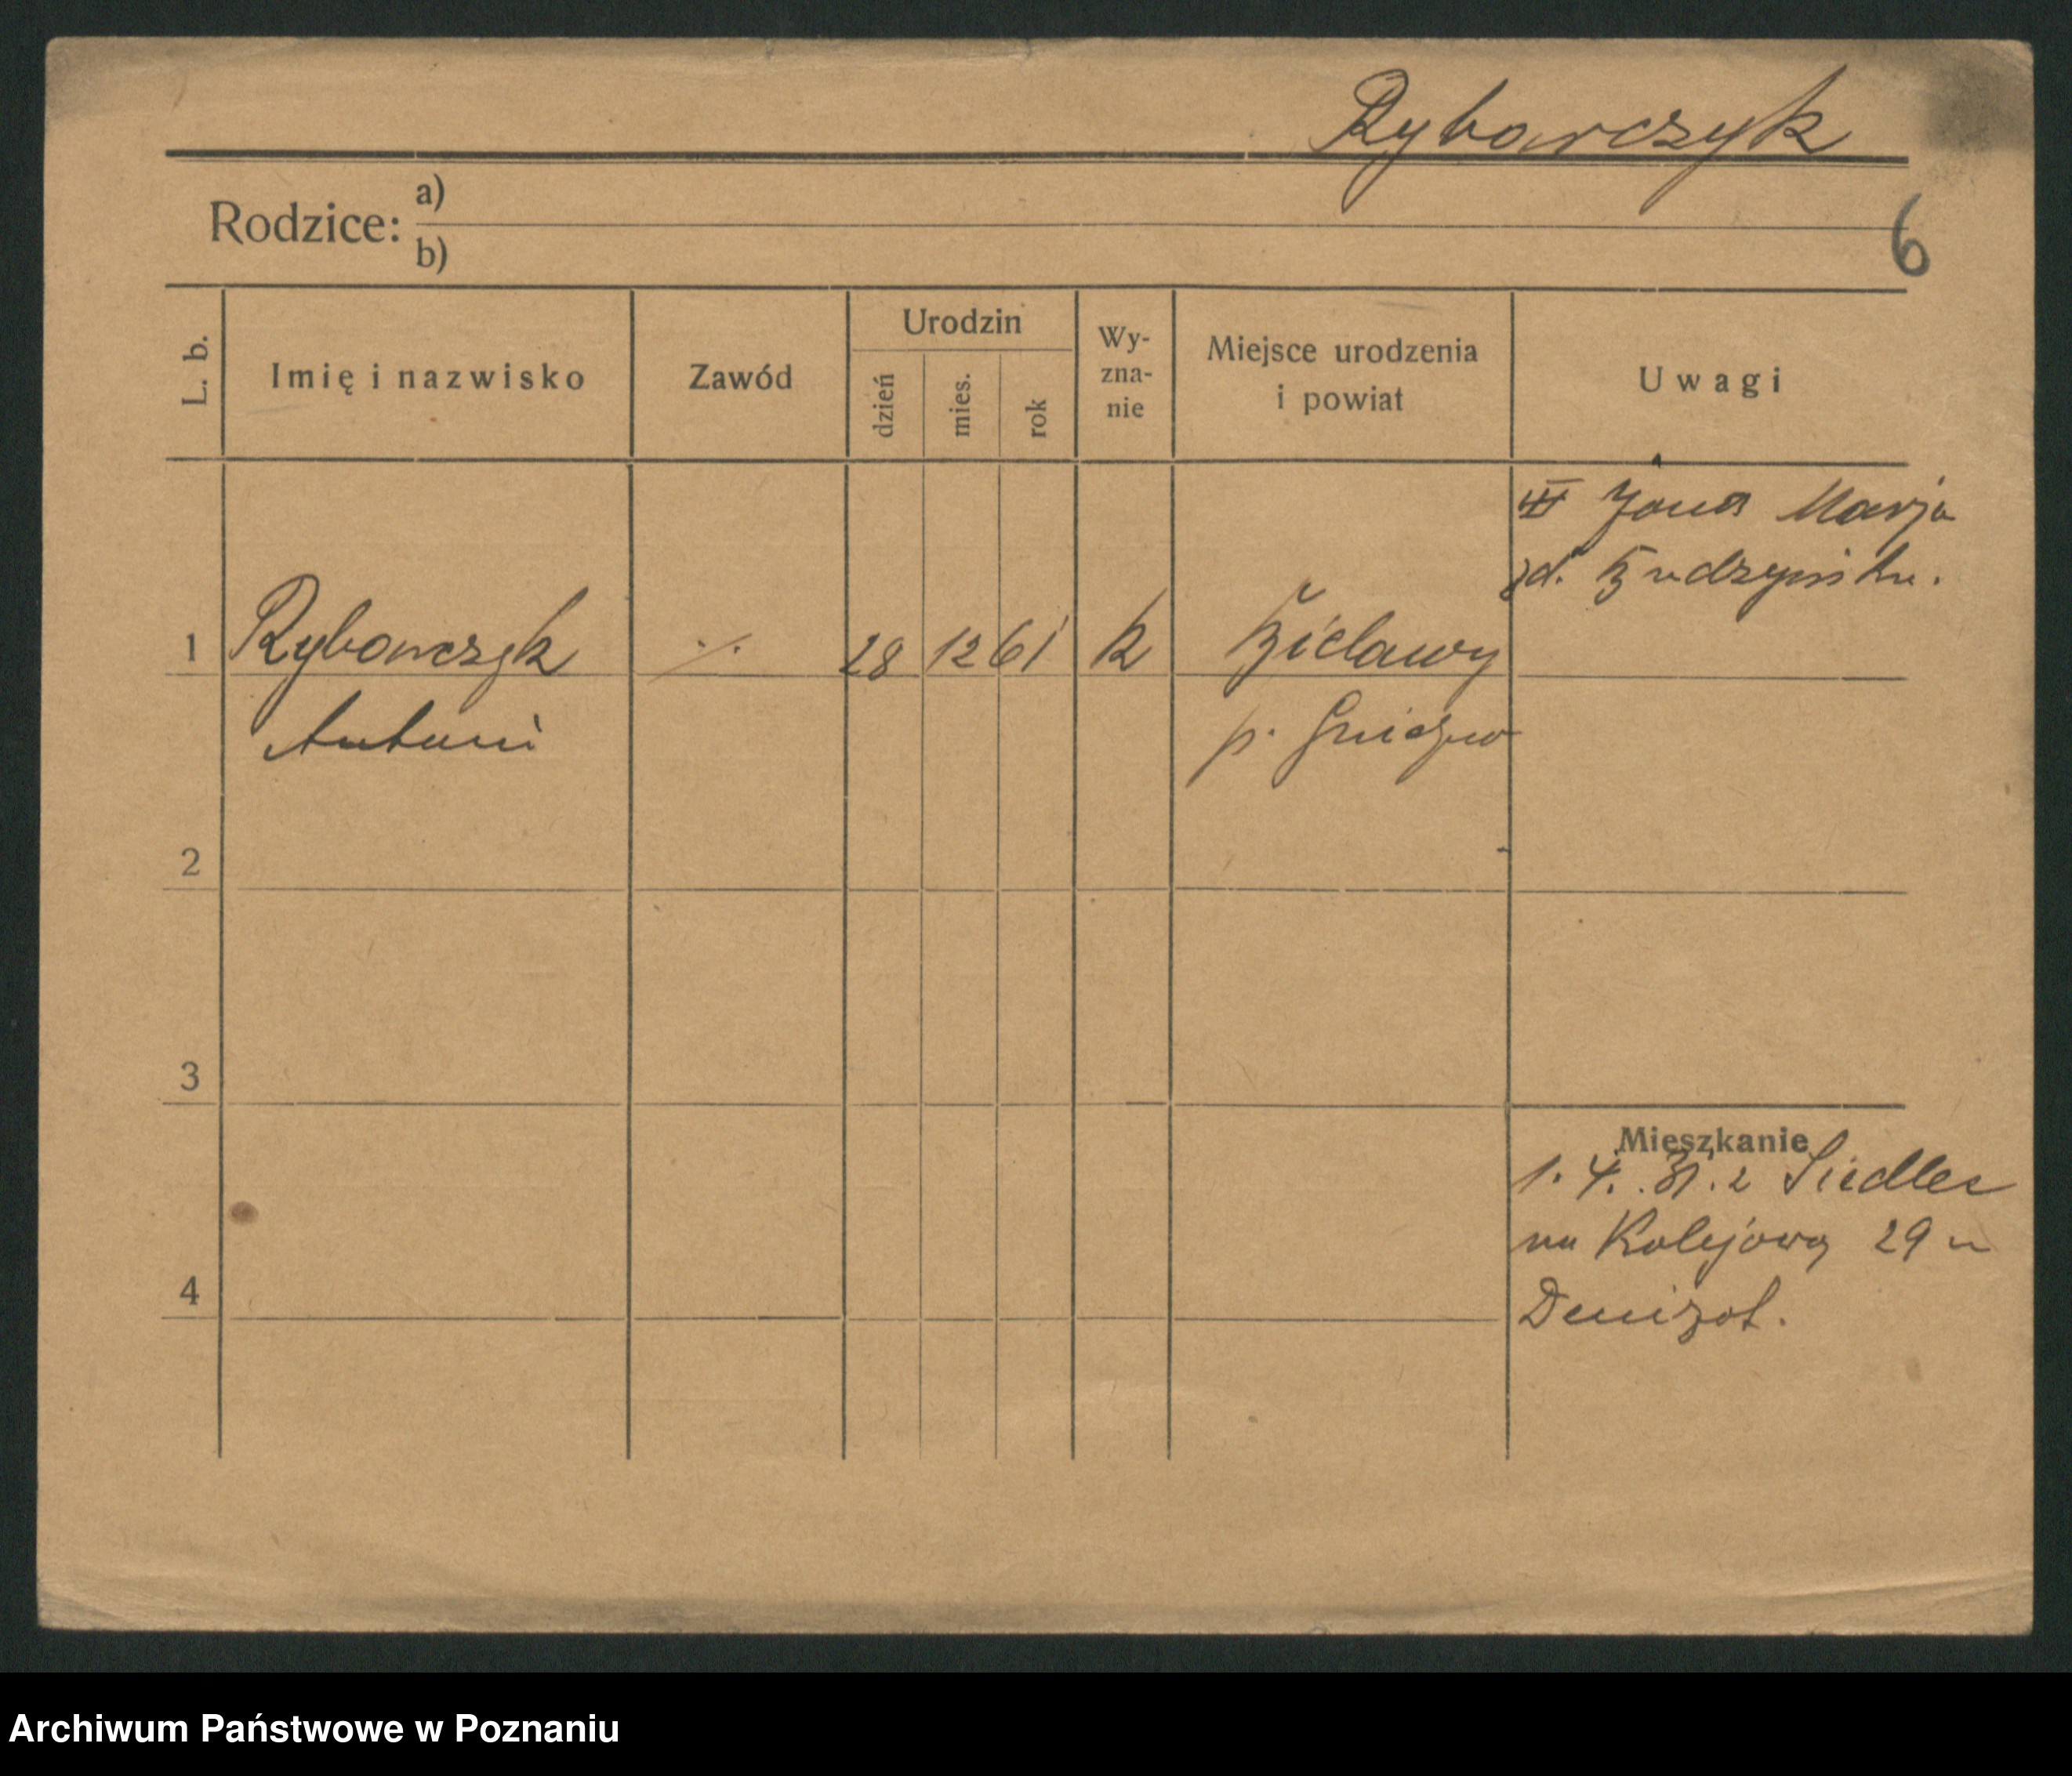 Rybarczyk
Rodzice: a)
b)
6
L. b. Imię i nazwisko Zawód Urodzin dzień mies. rok Wy-zna-nie Miejsce urodzenia i powiat Uwagi
Żona Marja
zd.
1 Rybarczyk ·/· 28 12 61 k
Antoni p.
2
3
Mieszkanie
1. 4. 31. z Siedlec
na Kolejową 29 u
4 Denizot.
Archiwum Państwowe w Poznaniu